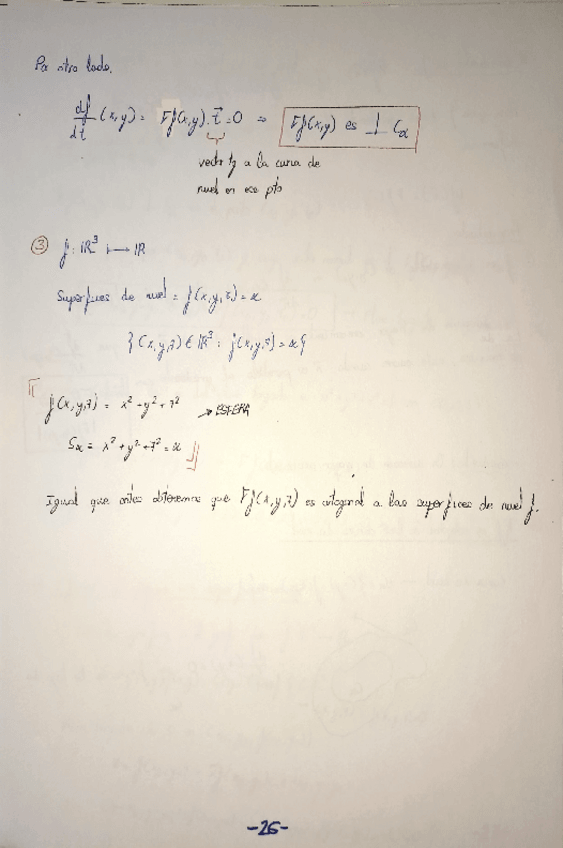 Por otro lado,
df/dt (x,y) = ∇f(x,y) · t⃗ = 0 ⇒ ∇f(x,y) es ⊥ Cα
vector tg a la curva de
nivel en ese pto
③ f: ℝ³ ⟼ ℝ
Superfices de nivel = f(x,y,z) = α
{(x,y,z) ∈ ℝ³ : f(x,y,z) = α}
f(x,y,z) = x² + y² + z² → ESFERA
Sα = x² + y² + z² = α
Igual que antes obtenemos que ∇f(x,y,z) es ortogonal a las superfices de nivel f.
-26-